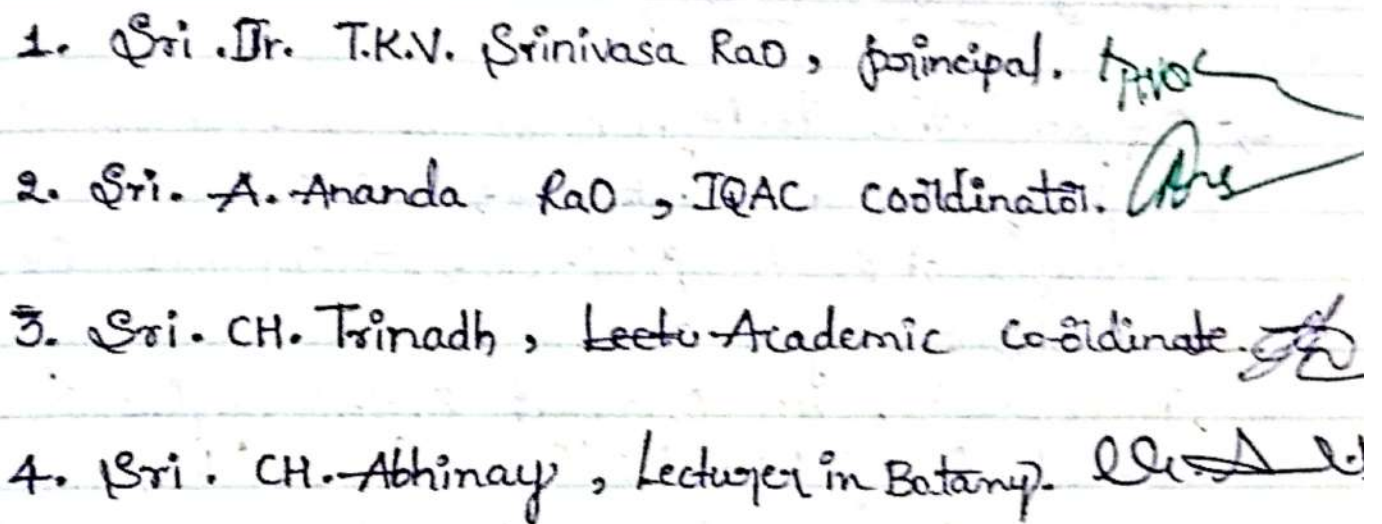 1. Sri .Dr. T.K.V. Srinivasa Rao, principal.
2. Sri. A. Ananda Rao, IQAC coordinator.
3. Sri. CH. Trinadh, Lectu Academic co-ordinate.
4. Sri. CH. Abhinay, Lecturer in Batany.